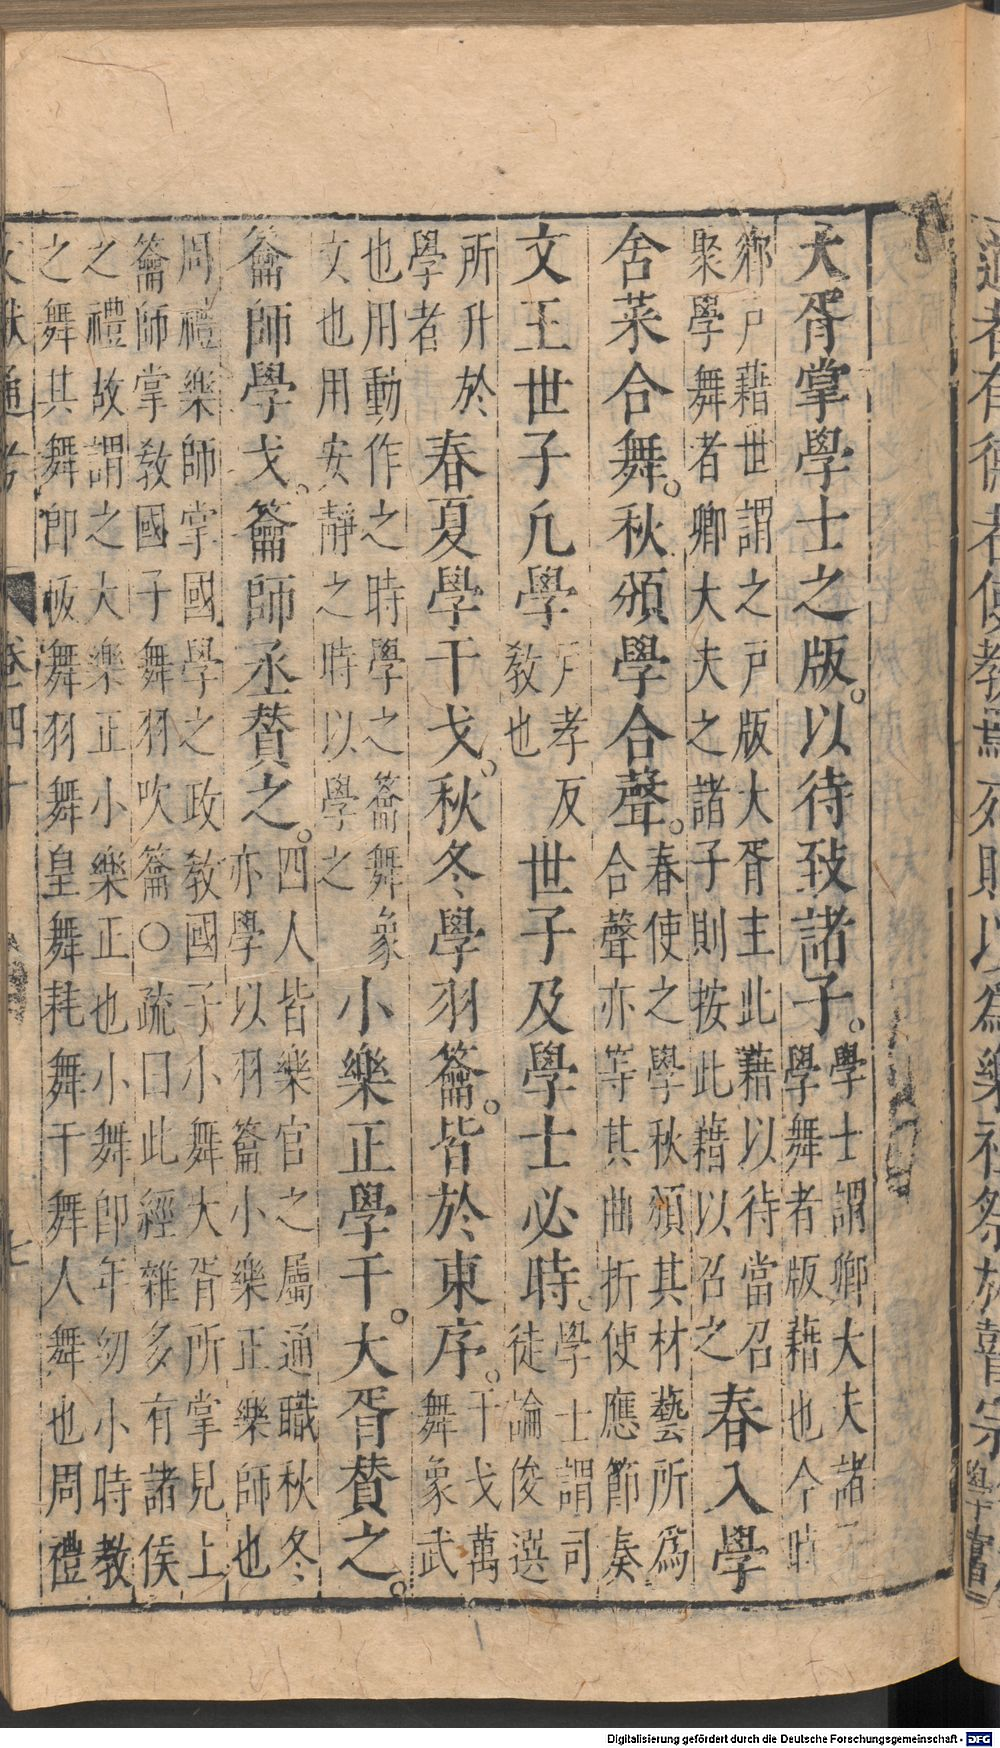 道者有德者使教焉死則以爲樂祖祭於瞽宗
大胥掌學士之版。以待致諸子。學士謂卿大夫諸子學舞者版藉也今時
鄉戶藉世謂之戶版大胥主此藉以待當召聚學舞者卿大夫之諸子則按此藉以召之春入學
舍菜合舞。秋頒學合聲。春使之學秋頒其材藝所爲合聲亦等其曲折使應節奏
文王世子凡學戶孝反教也世子及學士必時。學士謂司徒論俊選
所升於學者春夏學干戈。秋冬學羽籥。皆於東序。干戈萬舞象武
也用動作之時學之籥舞象文也用安靜之時以學之小樂正學干。大胥賛之。
籥師學戈。籥師丞賛之。四人皆樂官之屬通職秋冬亦學以羽籥小樂正樂師也
周禮樂師掌國學之政教國子小舞大胥所掌見上籥師掌敎國子舞羽吹籥○疏曰此經雜多有諸侯
之禮故謂之大樂正小樂正也小舞卽年幼小時教之舞其舞卽帗舞羽舞皇舞耗舞干舞人舞也周禮
文獻通考 卷四十 七
Digitalisierung gefördert durch die Deutsche Forschungsgemeinschaft - DFG